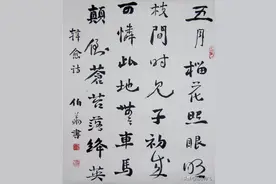 五月榴花照眼明
枝間时見子初成
可憐此地無車馬
顛倒蒼苔落絳英
韓愈詩
伯 書